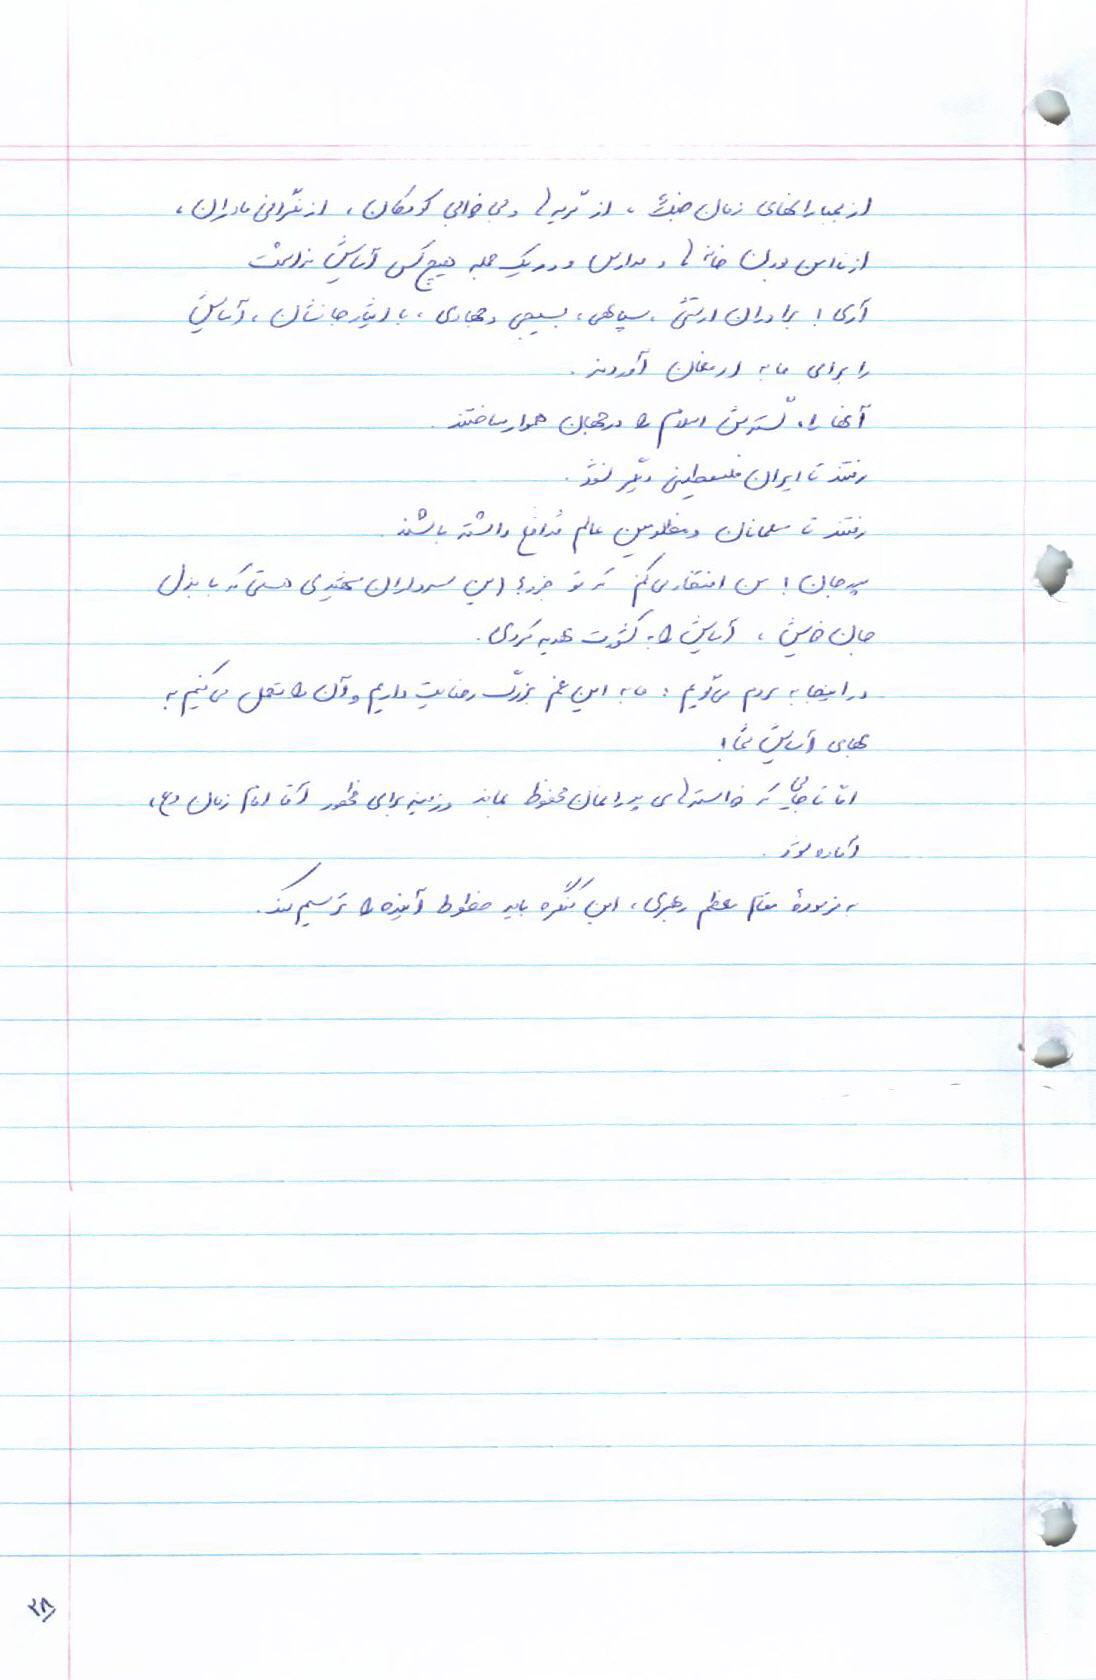 از بمبارانهای زمان جنگ، از گریه ها و بی خوابی کودکان، از نگرانی مادران،
از ناامن بودن خانه ها و مدارس و در یک جمله هیچ کس آسایش نداشت
آری! برادران ارتشی، سپاهی، بسیجی و جهادی، با ایثار جانشان، آسایش
را برای ما به ارمغان آوردند.
آنها راه گسترش اسلام را در جهان هموار ساختند.
رفتند تا ایران فلسطینی دیگر نشود.
رفتند تا مسلمانان و مظلومین عالم مدافع داشته باشند.
پدر جان! من افتخار می کنم که تو جزء این سرداران هستی که با بذل
جان خویش، آسایش را به کشورت هدیه کردی.
در اینجا به مردم می گویم: ما به این غم بزرگ رضایت داریم و آن را تحمل می کنیم به
بهای آسایش شما!
امّا تا جایی که خواسته های پدرانمان محفوظ بماند و زمینه برای ظهور آقا امام زمان (عج)
آماده شود.
به فرمودهٔ مقام معظم رهبری، این کنگره باید خطوط آینده را ترسیم کند.
۲۸